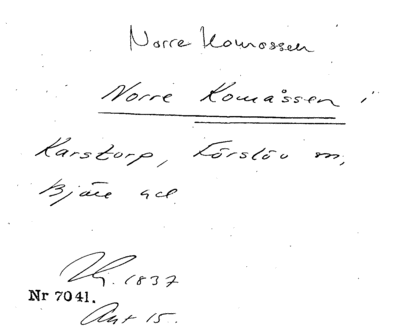 Norre Komossen
Norre Komåssen i
Karstorp, Förslöv sn,
Bjäre hd.
Lm. 1837
Nr 7041.
Akt 15.